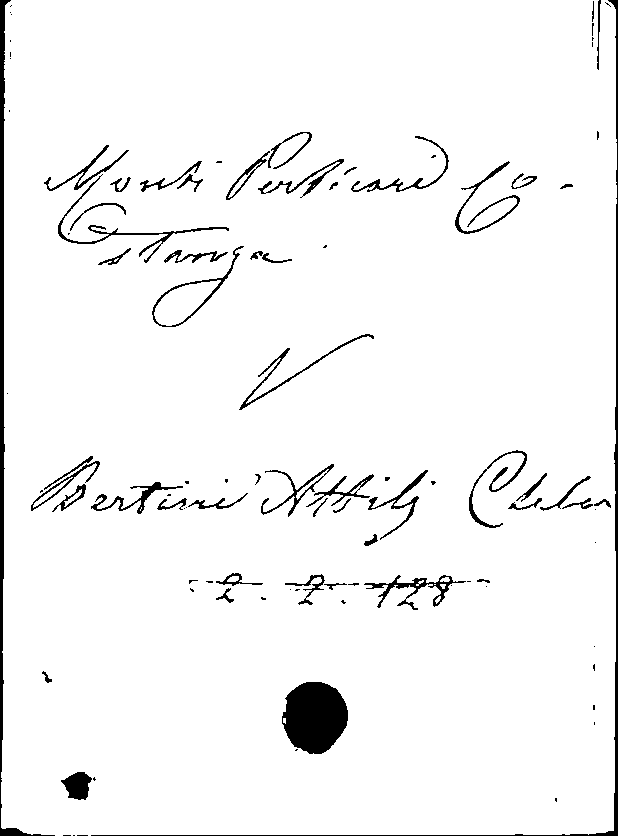 Monti Perticari Co-
stanza
V
Bertini Attilj Cleben
2. 2. 128